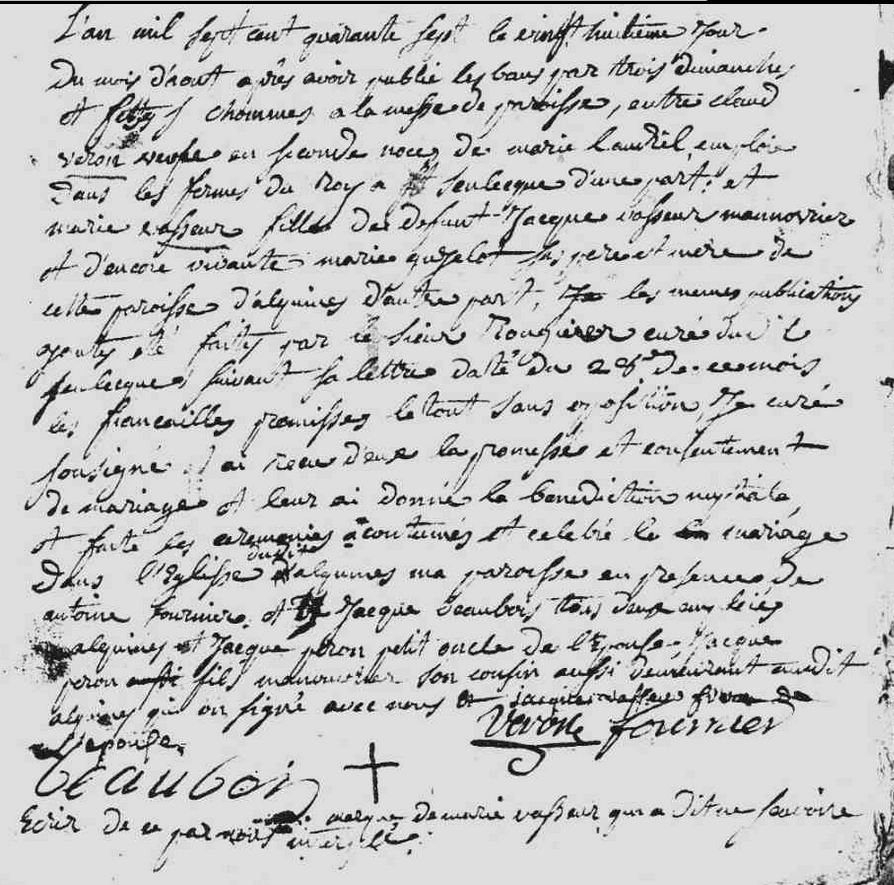 L'an mil sept cent quarante sept le vingt huitième jour
Du mois d'aout après avoir publié les bans par trois dimanches
et fettes chommes a la messe de paroisse, entre claud
veron veufe en seconde noces de marie laudrel emploié
Dans les fermes du Roy a Senlecque d'une part; et
marie vasseur fille de defunt Jacque vasseur mannovrier
et d'encore vivante marie quselot ses pere et mere de
cette paroisse d'alquines d'autre part, les memes publications
ayants été faites par le sieur curé dudit
Senlecque suivant sa lettre daté du 28e de ce mois
les fiancailles promisses le tout sans oposition, Je curé
sousigné ai recue d'eux la promesse et consentement
de mariage et leur ai donné la benediction nuptiale
et faite les ceremonies acoutumés et celebré le mariage
Dans l'Eglisse alquines ma paroisse en presence de
antoine fournier et Jacque beaubois tous deux emploiés
alquines et Jacque peron petit oncle de l'Epouse Jacque
peron fils manouvrier son cousin aussi demeurant audit
alqines qui on signé avec nous et jacques vasseur frere de
L'epouse
veron fournier
beaubois +
marque de marie vasseur qui a dit ne scavoire
Ecrir de ce par nous